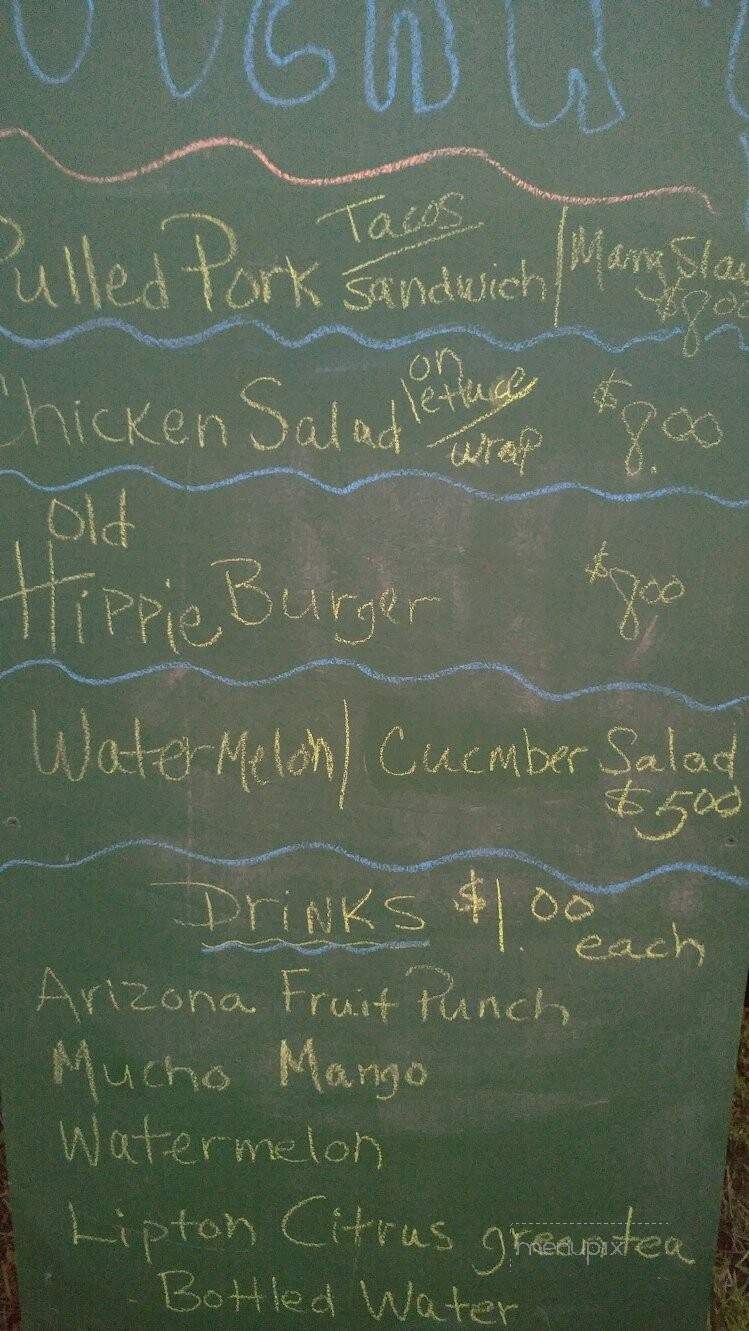 Tacos
Pulled Pork Sandwich
$8.00
on
Chicken Salad lettuce $8.00
wrap
Old
Hippie Burger $8.00
WaterMelon / Cucmber Salad
$5.00
DRINKS $1.00
each
Arizona Fruit Punch
Mucho Mango
Watermelon
Lipton Citrus green tea
- Bottled Water
menupix